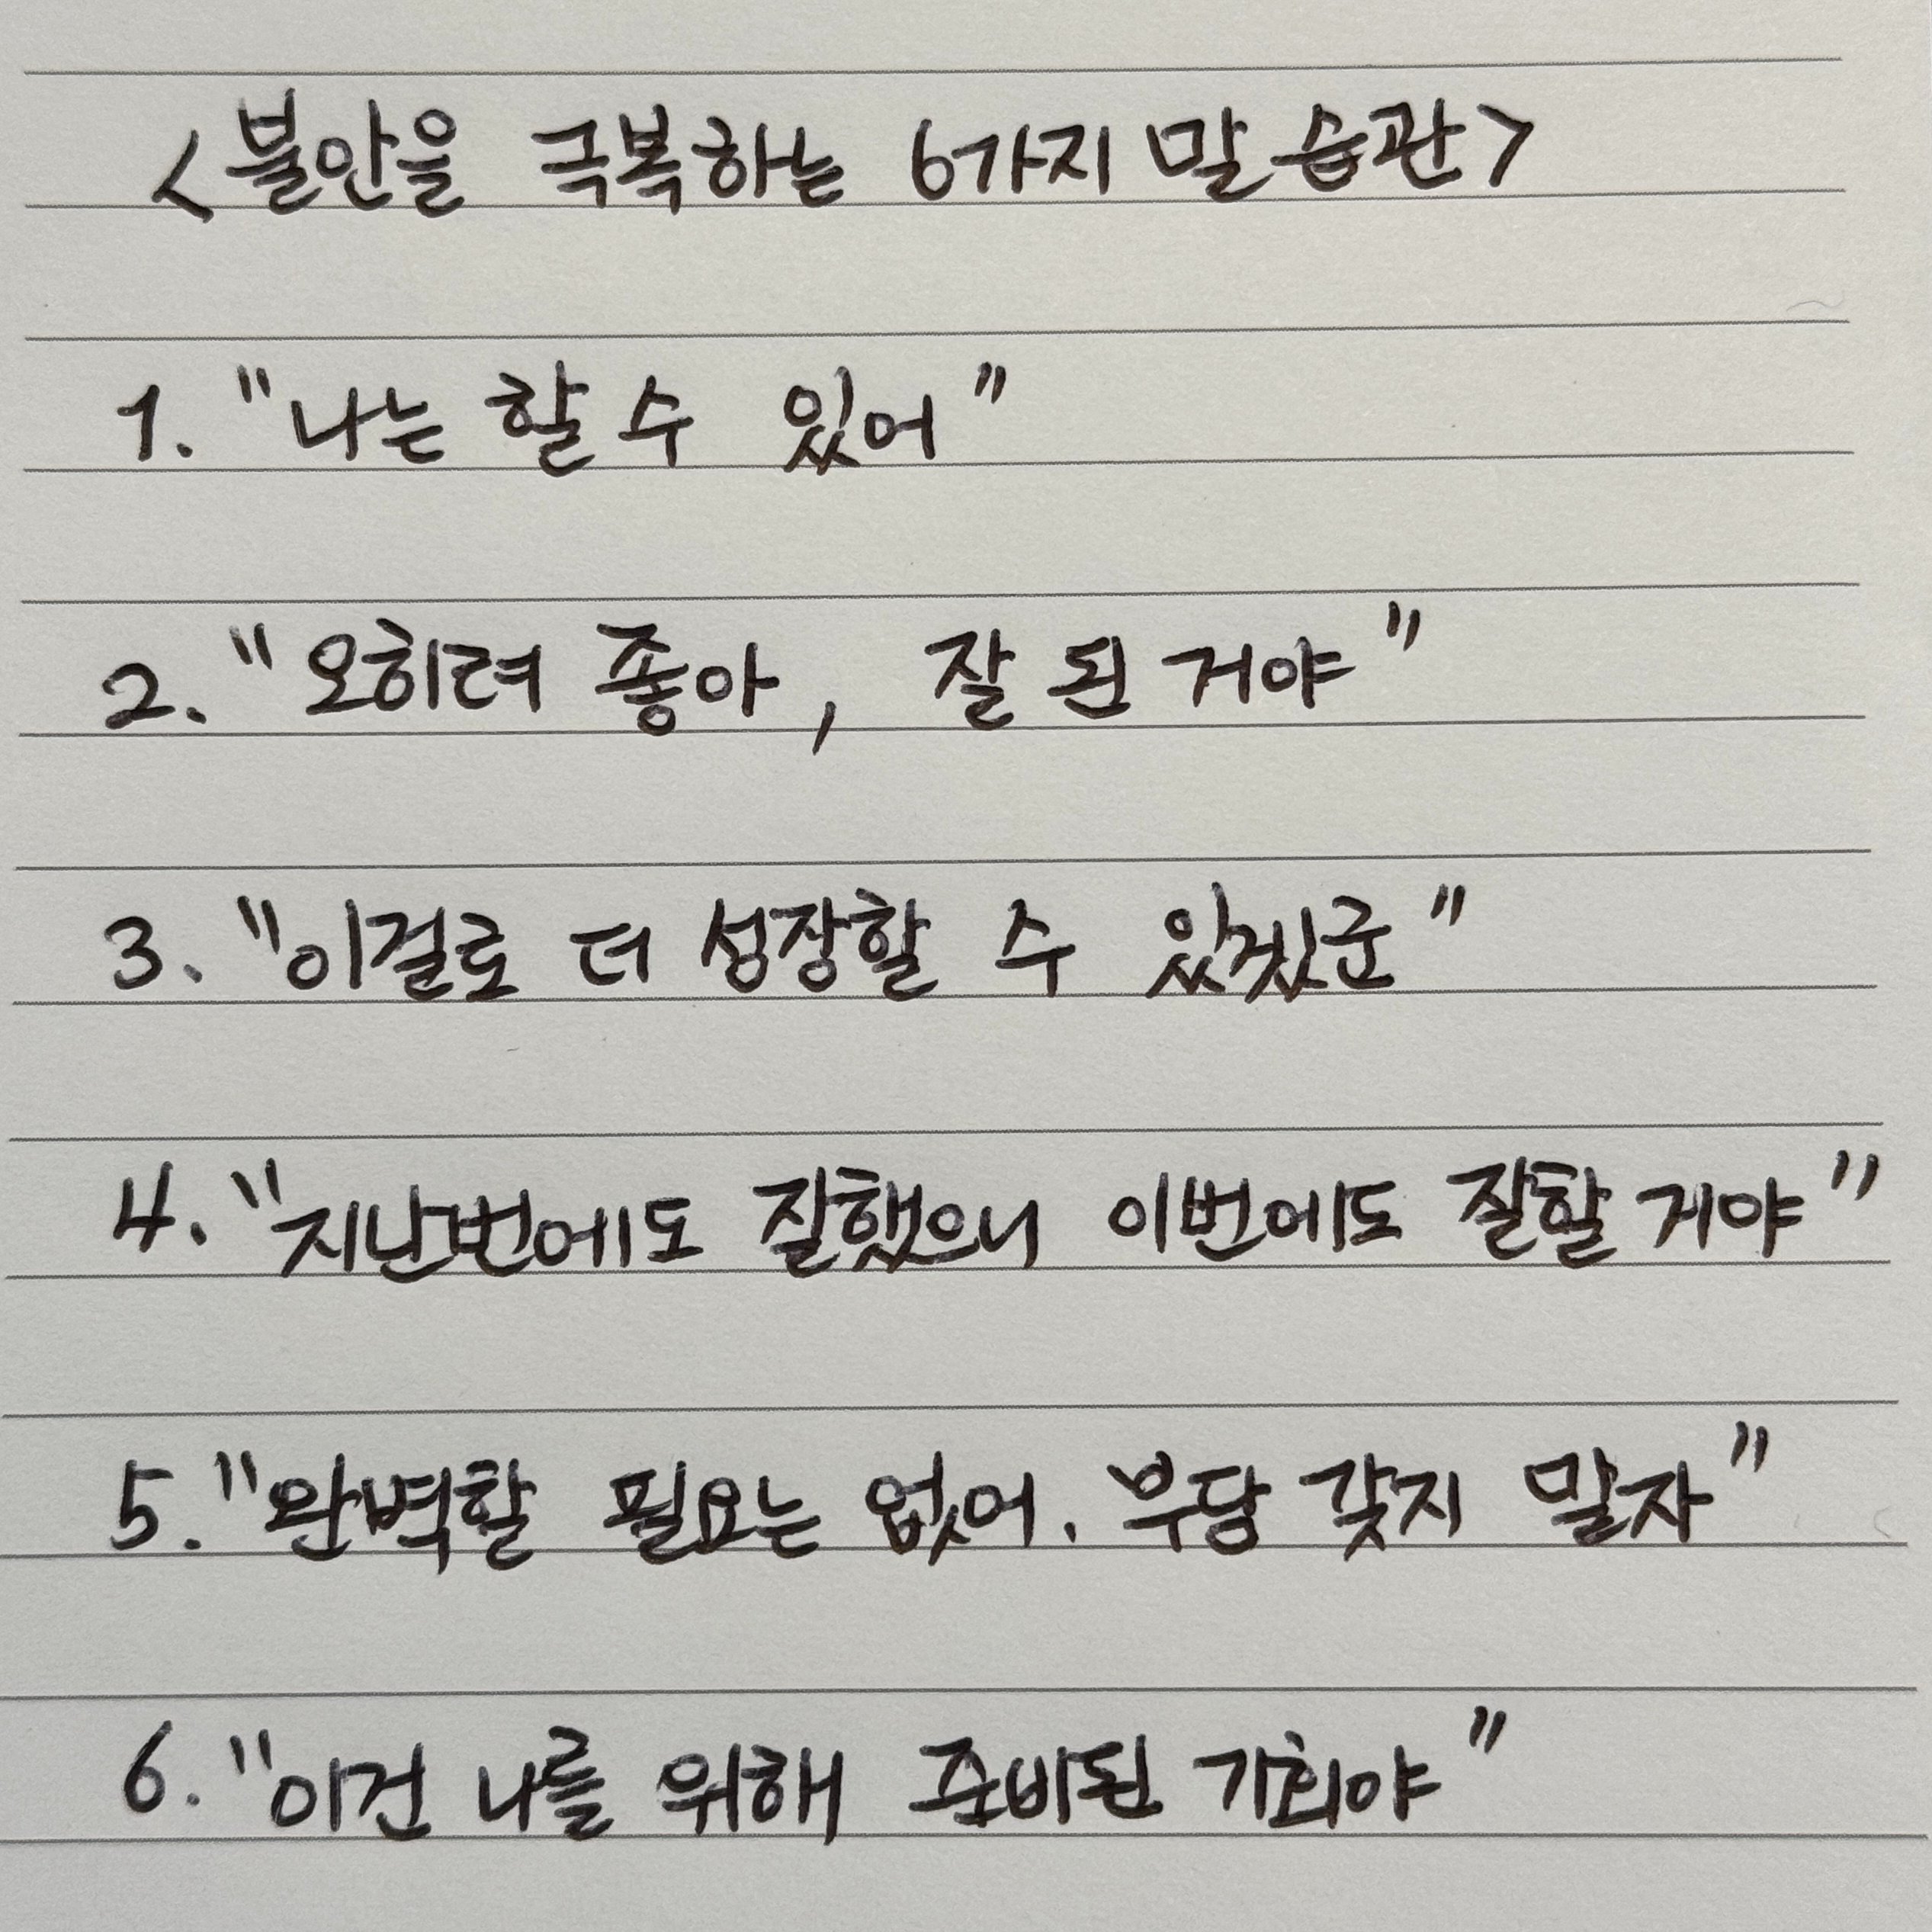 <불안을 극복하는 6가지 말 습관>
1. "나는 할 수 있어"
2. "오히려 좋아, 잘 된 거야"
3. "이걸로 더 성장할 수 있겠군"
4. "지난번에도 잘했으니 이번에도 잘할 거야"
5. "완벽할 필요는 없어. 부담 갖지 말자"
6. "이건 나를 위해 준비된 기회야"